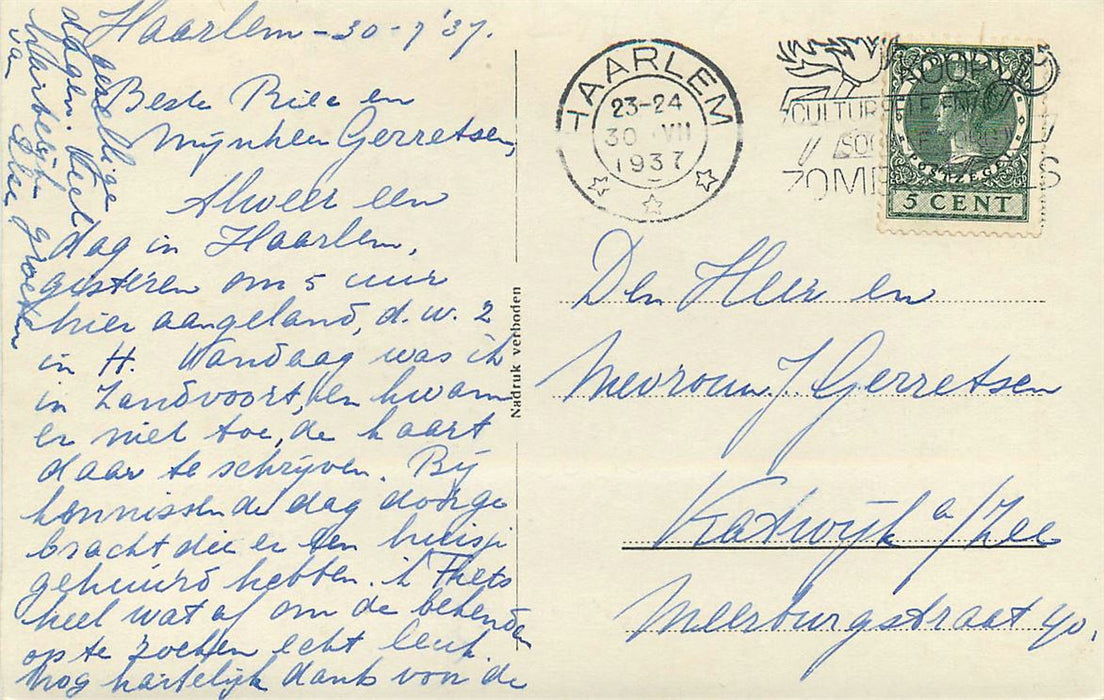 Haarlem - 30-7'37.
Beste Riee en
Mynheer Gerretsen,
Alweer een
dag in Haarlem,
gisteren om 5 uur
hier aangeland, d.w.z
in H. Vandaag was ik
in Zandvoort, en kwam
er niet toe, de kaart
daar te schrijven. Bij
kennissen de dag doorge
bracht die er een huisje
gehuurd hebben. ik fiets
heel wat af om de bekenden
op te zoeken echt leuk.
nog hartelijk dank voor de
gezellige
dagen. Veel
hartelijke groeten
van
HAARLEM
23-24
30 VII
1937
VOOR
CULTUREELE EN
SOC
ZOMERZEGELS
NEDERLAND
POSTZEGEL
5 CENT
Nadruk verboden
Den Heer en
Mevrouw J. Gerretsen
Katwijk a/Zee
Meerburgstraat 40.